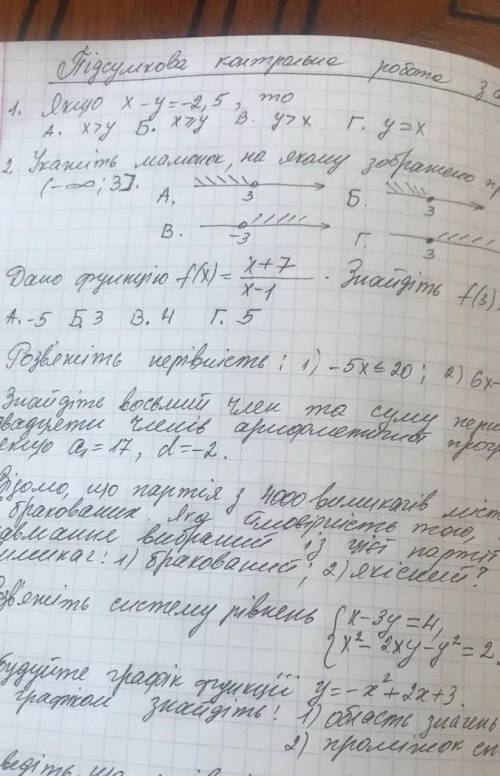 Підсумкова контрольна робота з
1. Якщо x-y=-2,5, то
А. x>y Б. x≥y В. y>x Г. y=x
2. Укажіть малюнок, на якому зображено
(-∞; 3].
А. 3 Б. 3
В. -3 Г. 3
Дано функцію f(x)= x+7 / x-1 . Знайдіть f(3)
А. -5 Б. 3 В. 4 Г. 5
Розв'яжіть нерівність: 1) -5x≤20; 2) 6x-
Знайдіть восьмий член та суму перш
двадцяти членів арифметичної прогр
якщо a₁=17, d=-2.
Відомо, що партія з 4000 вимикачів міст
бракованих. Яка ймовірність того,
навмання вибраний із цієї партії
вимикач: 1) бракований; 2) якісний?
Розв'яжіть систему рівнянь { x-3y=4,
x²-2xy-y²=2.
будуйте графік функції y=-x²+2x+3.
графіком знайдіть: 1) область значень
2) проміжок сп
ведіть, що